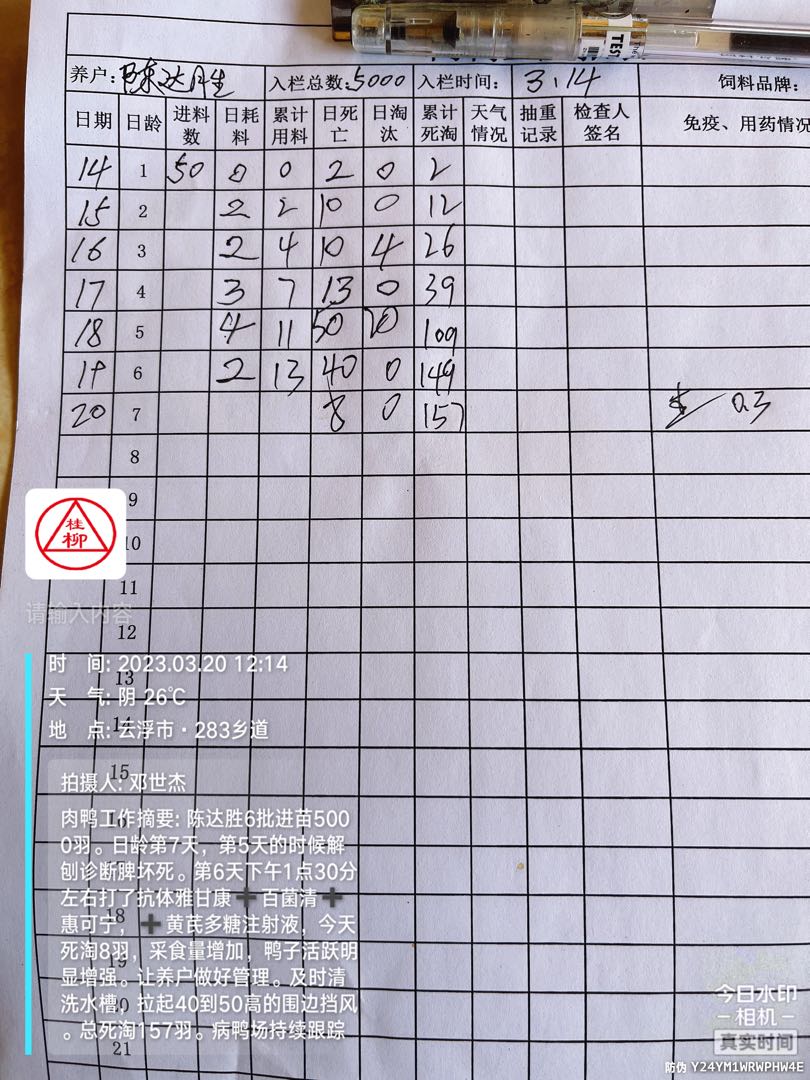 养户:陈达胜 入栏总数:5000 入栏时间: 3.14 饲料品牌:
日期 日龄 进料数 日耗料 累计用料 日死亡 日淘汰 累计死淘 天气情况 抽重记录 检查人签名 免疫、用药情况
14 1 50 0 0 2 0 2
15 2 2 2 10 0 12
16 3 2 4 10 4 26
17 4 3 7 13 0 39
18 5 4 11 50 20 109
19 6 2 13 40 0 149
20 7 8 0 157 0.3
8
9
10
11
12
13
14
15
18
19
20
21
TEST
桂柳
请输入内容
时 间: 2023.03.20 12:14
天 气: 阴 26℃
地 点: 云浮市·283乡道
拍摄人: 邓世杰
肉鸭工作摘要: 陈达胜6批进苗500
0羽。日龄第7天，第5天的时候解
刨诊断脾坏死。第6天下午1点30分
左右打了抗体雅甘康➕百菌清➕
惠可宁，➕黄芪多糖注射液，今天
死淘8羽，采食量增加，鸭子活跃明
显增强。让养户做好管理。及时清
洗水槽，拉起40到50高的围边挡风
。总死淘157羽。病鸭场持续跟踪
今日水印
相机
真实时间
防伪 Y24YM1WRWPHW4E